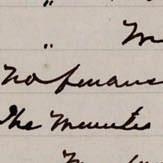 "
" M
No finance
The Minutes